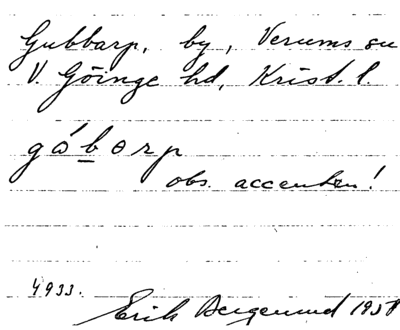 Gubbarp, by, Verums sn
V. Göinge hd, Krist. l.
gá̊b̲ɵrp
obs. accenten!
4933.
Erik Bergelund 1938